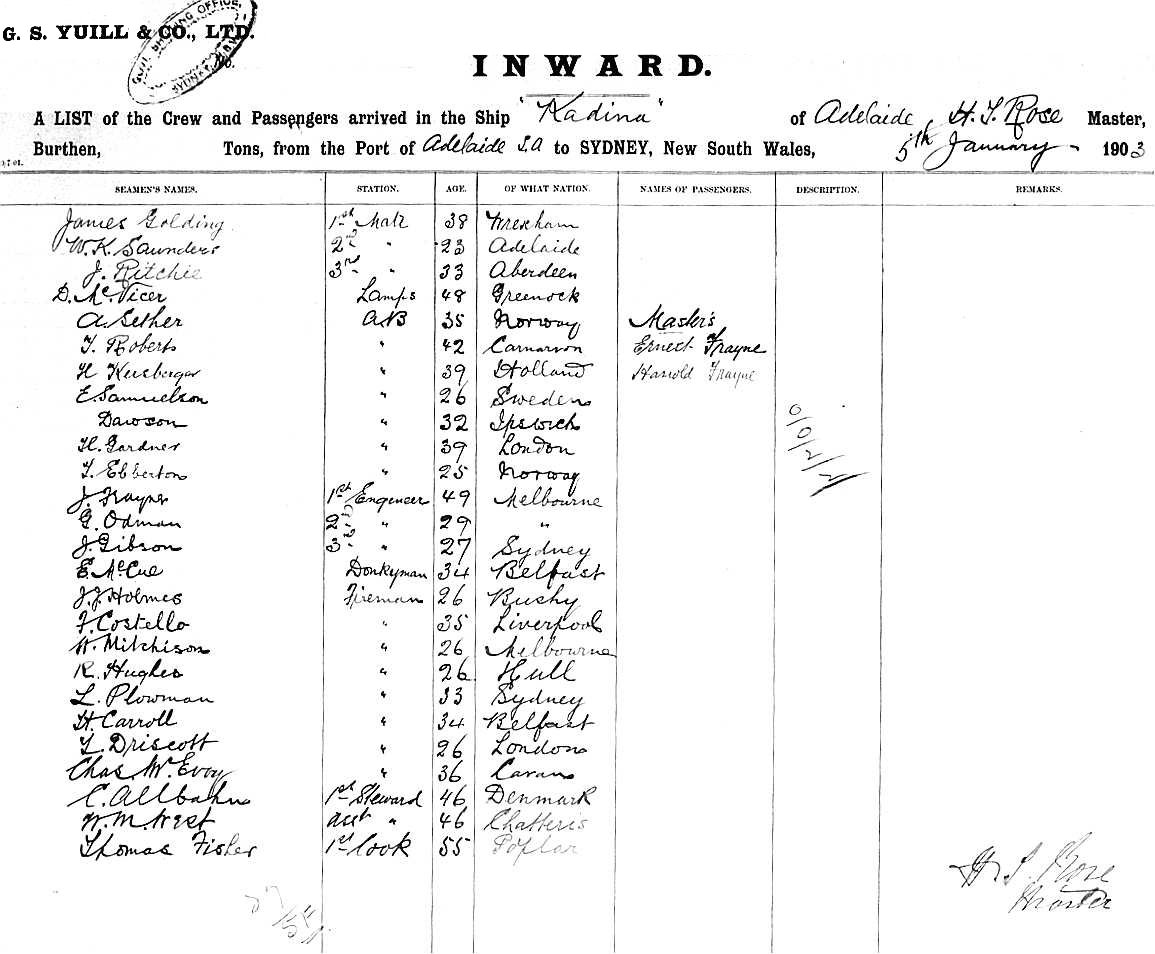 G. S. YUILL & CO., LTD.
SHIPPING OFFICE,
SYDNEY
No.
INWARD.
A LIST of the Crew and Passengers arrived in the Ship "Kadina" of Adelaide, H. S. Rose Master,
Burthen, Tons, from the Port of Adelaide S.A to SYDNEY, New South Wales, 5th January 1903
SEAMEN'S NAMES. STATION. AGE. OF WHAT NATION. NAMES OF PASSENGERS. DESCRIPTION. REMARKS.
James Golding 1st Mate 38 Wrexham
W. K. Saunders 2nd " 23 Adelaide
J. Ritchie 3rd " 33 Aberdeen
D. McVicer Lamps 48 Greenock
A. Sether AB 35 Norway Masters
T. Roberts " 42 Carnarvon Ernest Frayne
H " 39 Holland Harold Frayne
E Samuelson " 26 Sweden
Dawson " 32 Ipswich
H. Gardner " 39 London
T. Ebberton " 25 Norway
J. Frayne 1st Engeneer 49 Melbourne
G. Odman 2nd " 29 "
J. Gibson 3rd " 27 Sydney
E. McCue Donkeyman 34 Belfast
J. J. Holmes Fireman 26 Bushy
F. Costello " 35 Liverpool
W. Mitchison " 26 Melbourne
R. Hughes " 26 Hull
L. Plowman " 33 Sydney
H. Carroll " 34 Belfast
T. Driscott " 26 London
Chas. McEvoy " 36 Cavan
C. Allbahn 1st Steward 46 Denmark
W. M. West asst " 46 Chatteris
Thomas Fisher 1st Cook 55 Poplar
H. S. Rose
Master